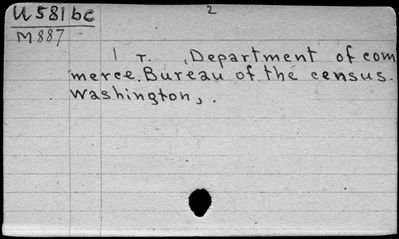 U581bc 2
M887
1 T. , Department of com
merce. Bureau of the census.
Washington, .